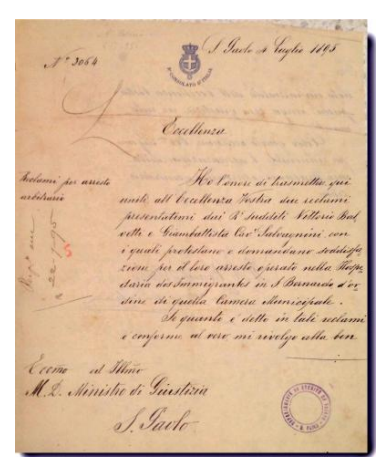 N° 3064
S. Paolo 4 Luglio 1895
R° CONSOLATO D'ITALIA
Eccellenza
Reclami per arresto
arbitrario
Ho l'onore di trasmettere qui
unite all'Eccellenza Vostra due reclami
presentatimi dai R' Sudditi Vittorio
e Giambattista Cav° Salvagnini, con
i quali protestano e domandano soddisfa
zione per il loro arresto operato nella Hospe
daria dos Immigrantes in S. Bernardo d'or
dine di quella Camera Municipale.
Se quanto è detto in tali reclami
è conforme al vero mi rivolgo alla ben
Eccmo ed Illmo
M. D. Ministro di Giustizia
S. Paolo